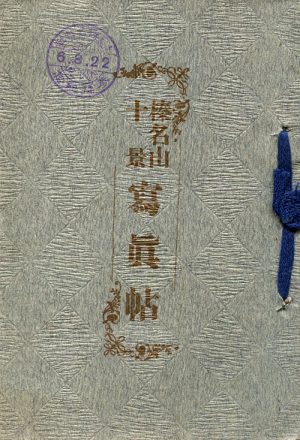 榛名山
十景
寫眞帖
6.8.22